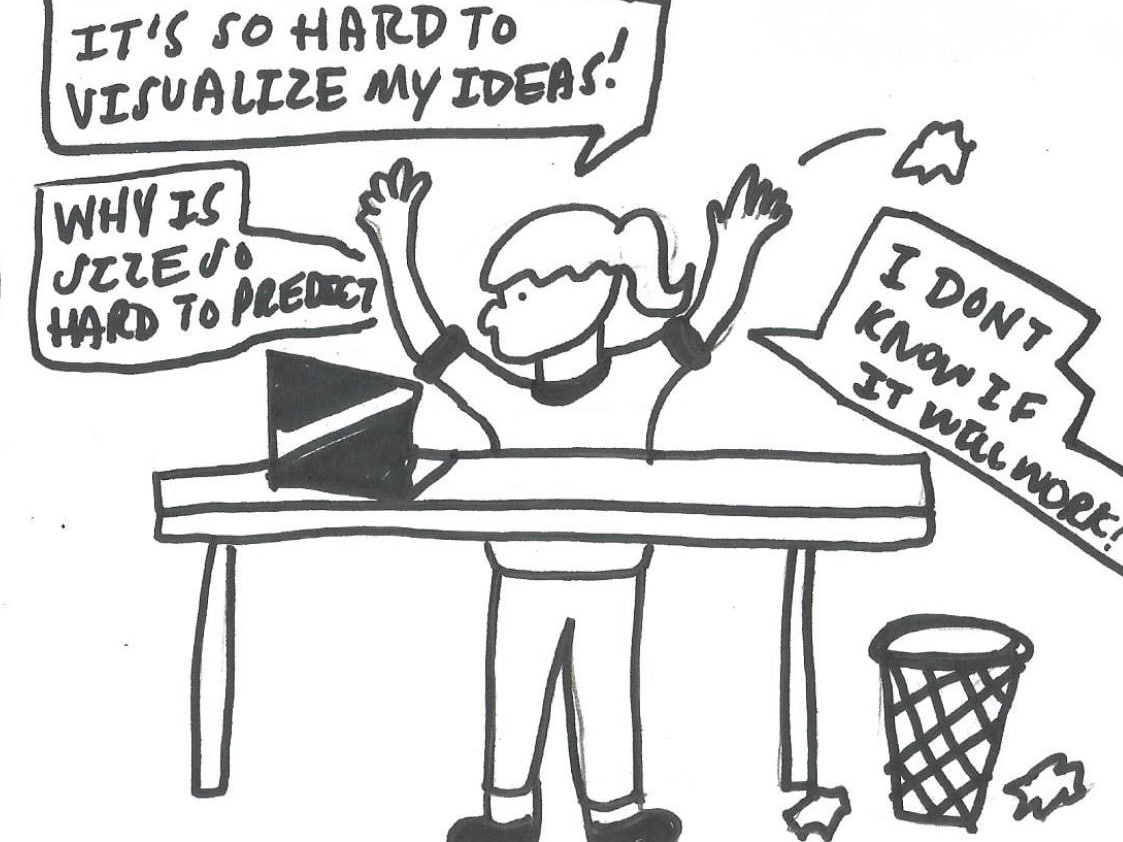 IT'S SO HARD TO
VISUALIZE MY IDEAS!
WHY IS
SIZE SO
HARD TO PREDICT
I DONT
KNOW IF
IT WILL WORK!